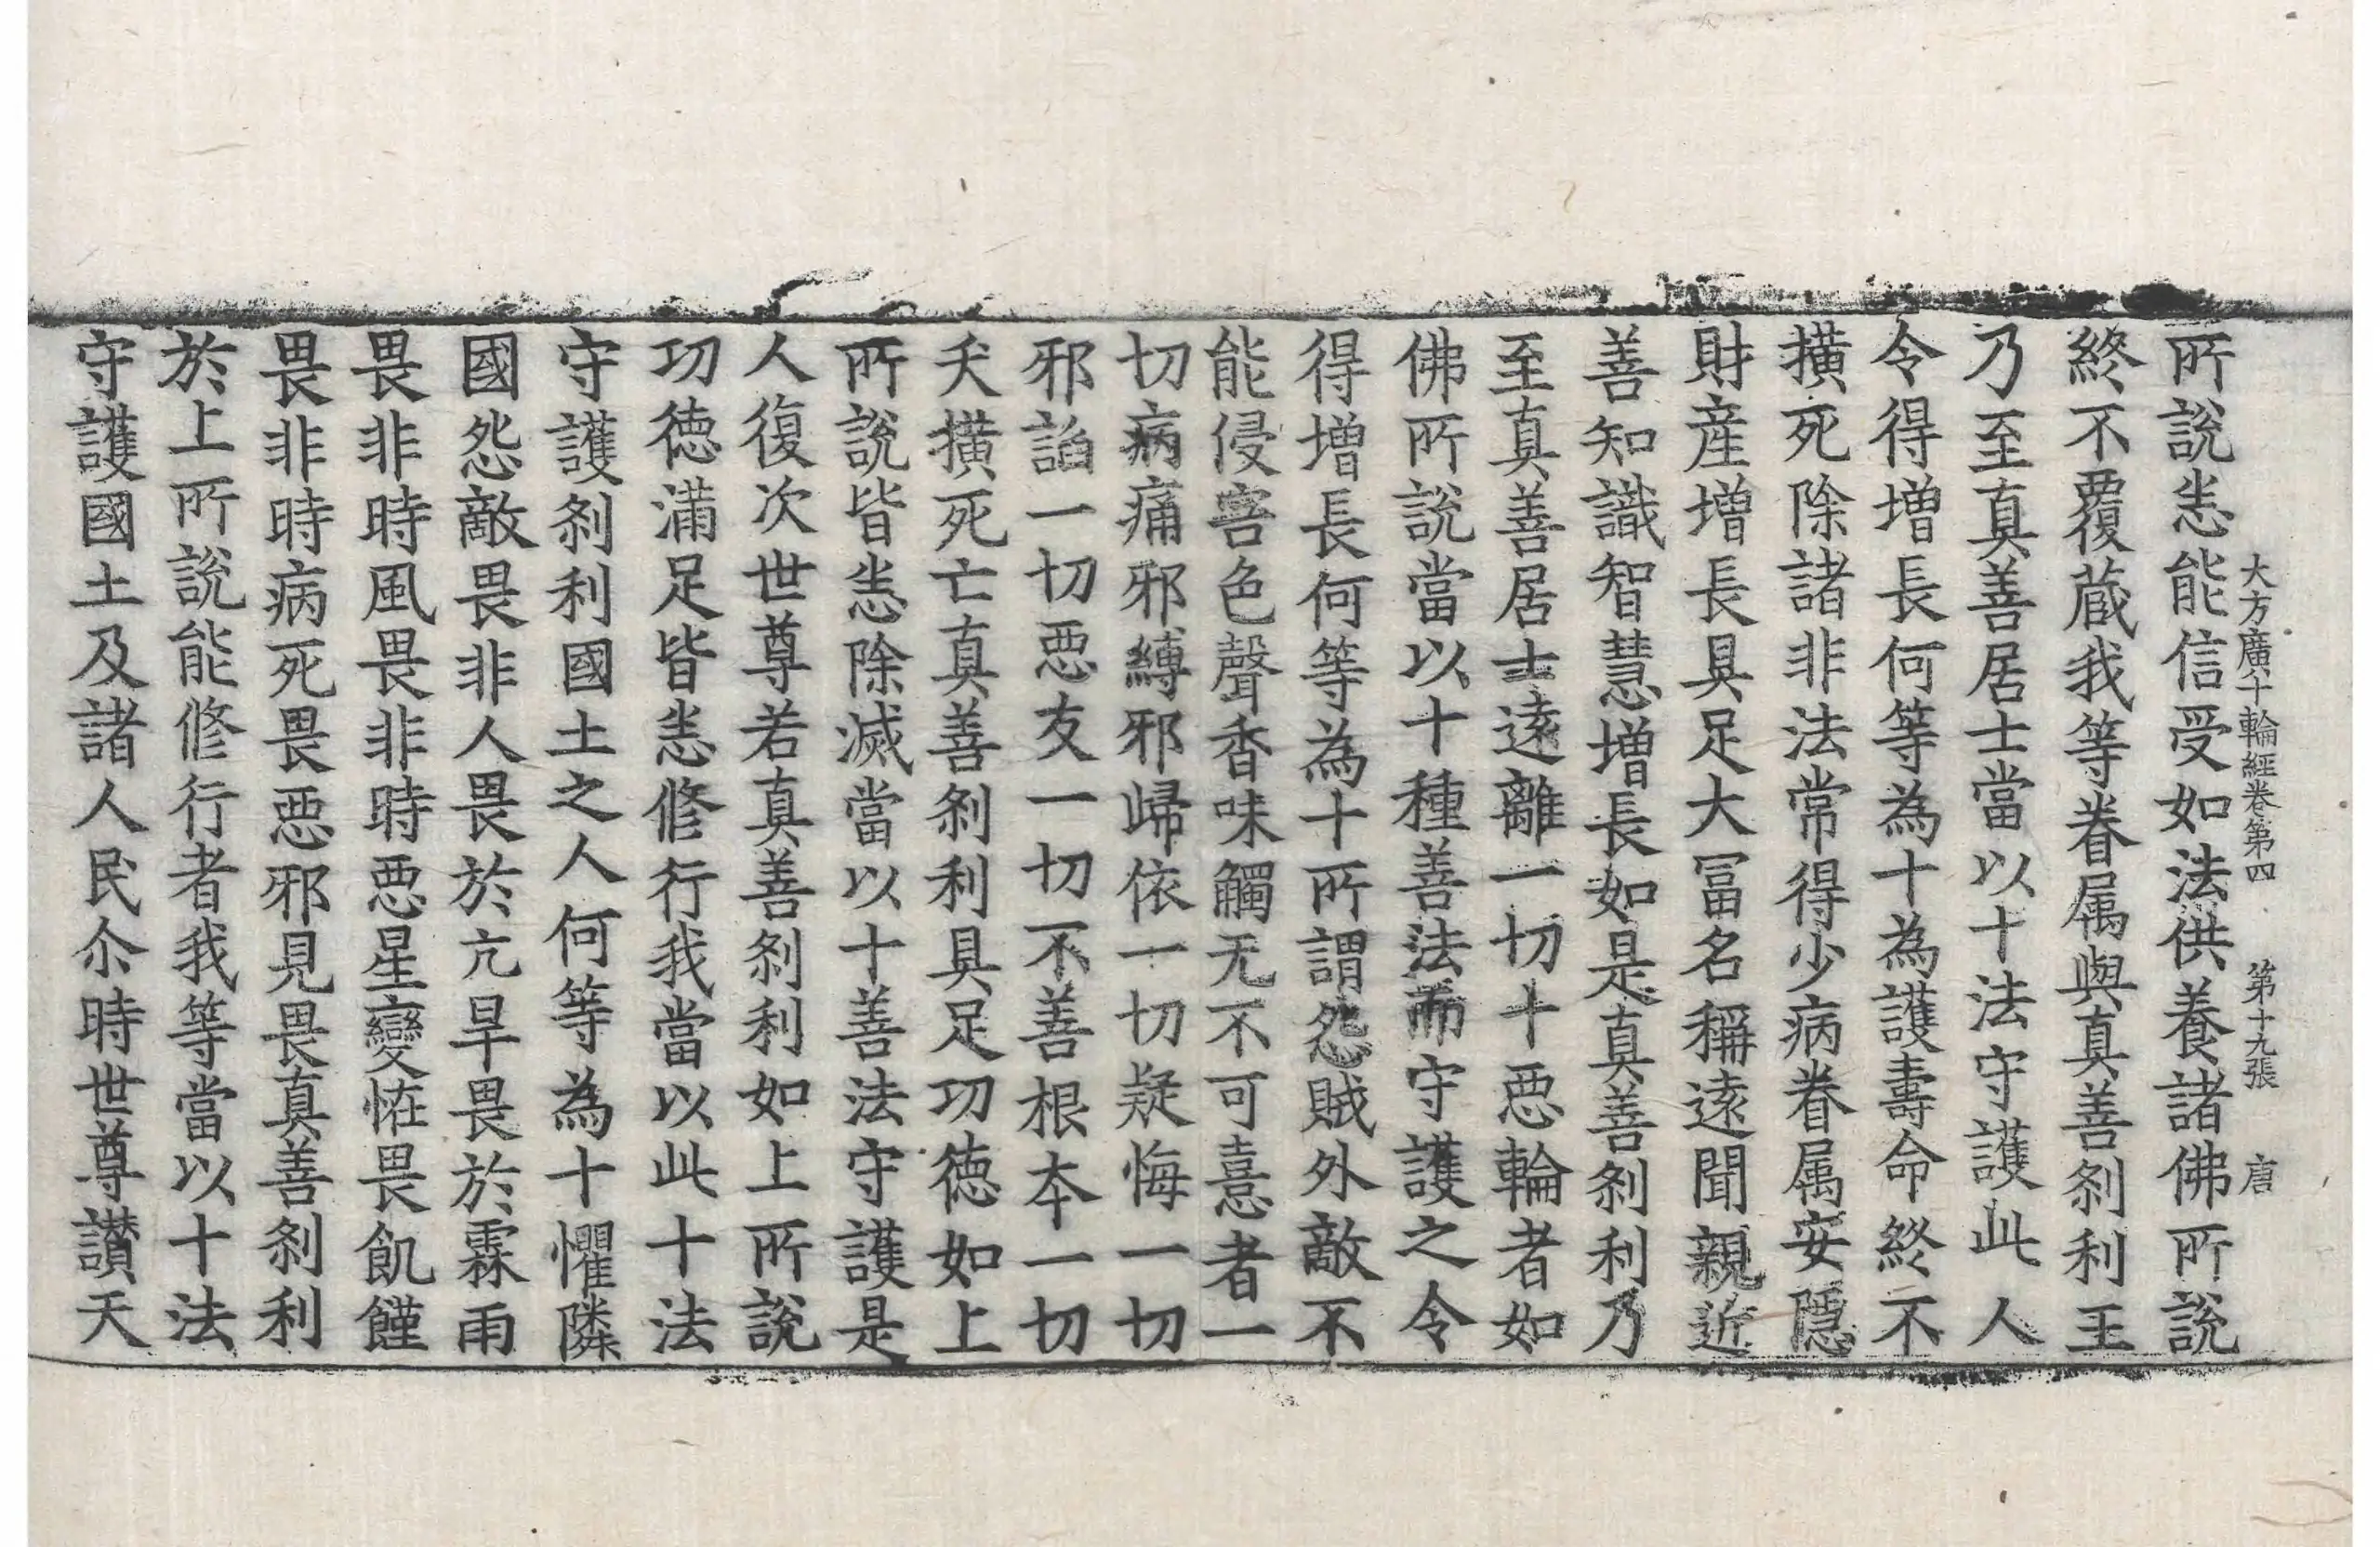 大方廣十輪經卷第四 第十九張 唐
所說恙能信受如法供養諸佛所說
終不覆蔵我等眷属與真善剎利王
乃至真善居士當以十法守護此人
令得增長何等為十為護壽命終不
撗死除諸非法常得少病眷属安隱
財産增長具足大冨名稱遠聞親近
善知識智慧增長如是真善剎利乃
至真善居士遠離一切十惡輪者如
佛所說當以十種善法而守護之令
得增長何等為十所謂怨賊外敵不
能侵害色聲香味觸无不可憙者一
切病痛邪縛邪歸依一切疑悔一切
邪謟一切惡友一切不善根本一切
夭撗死亡真善剎利具足功徳如上
所說皆恙除滅當以十善法守護是
人復次世尊若真善剎利如上所說
功徳滿足皆恙修行我當以此十法
守護剎利國土之人何等為十懼隣
國怨敵畏非人畏於亢旱畏於霖雨
畏非時風畏非時惡星變恠畏飢饉
畏非時病死畏惡邪見畏真善剎利
於上所說能修行者我等當以十法
守護國土及諸人民尒時世尊讃天